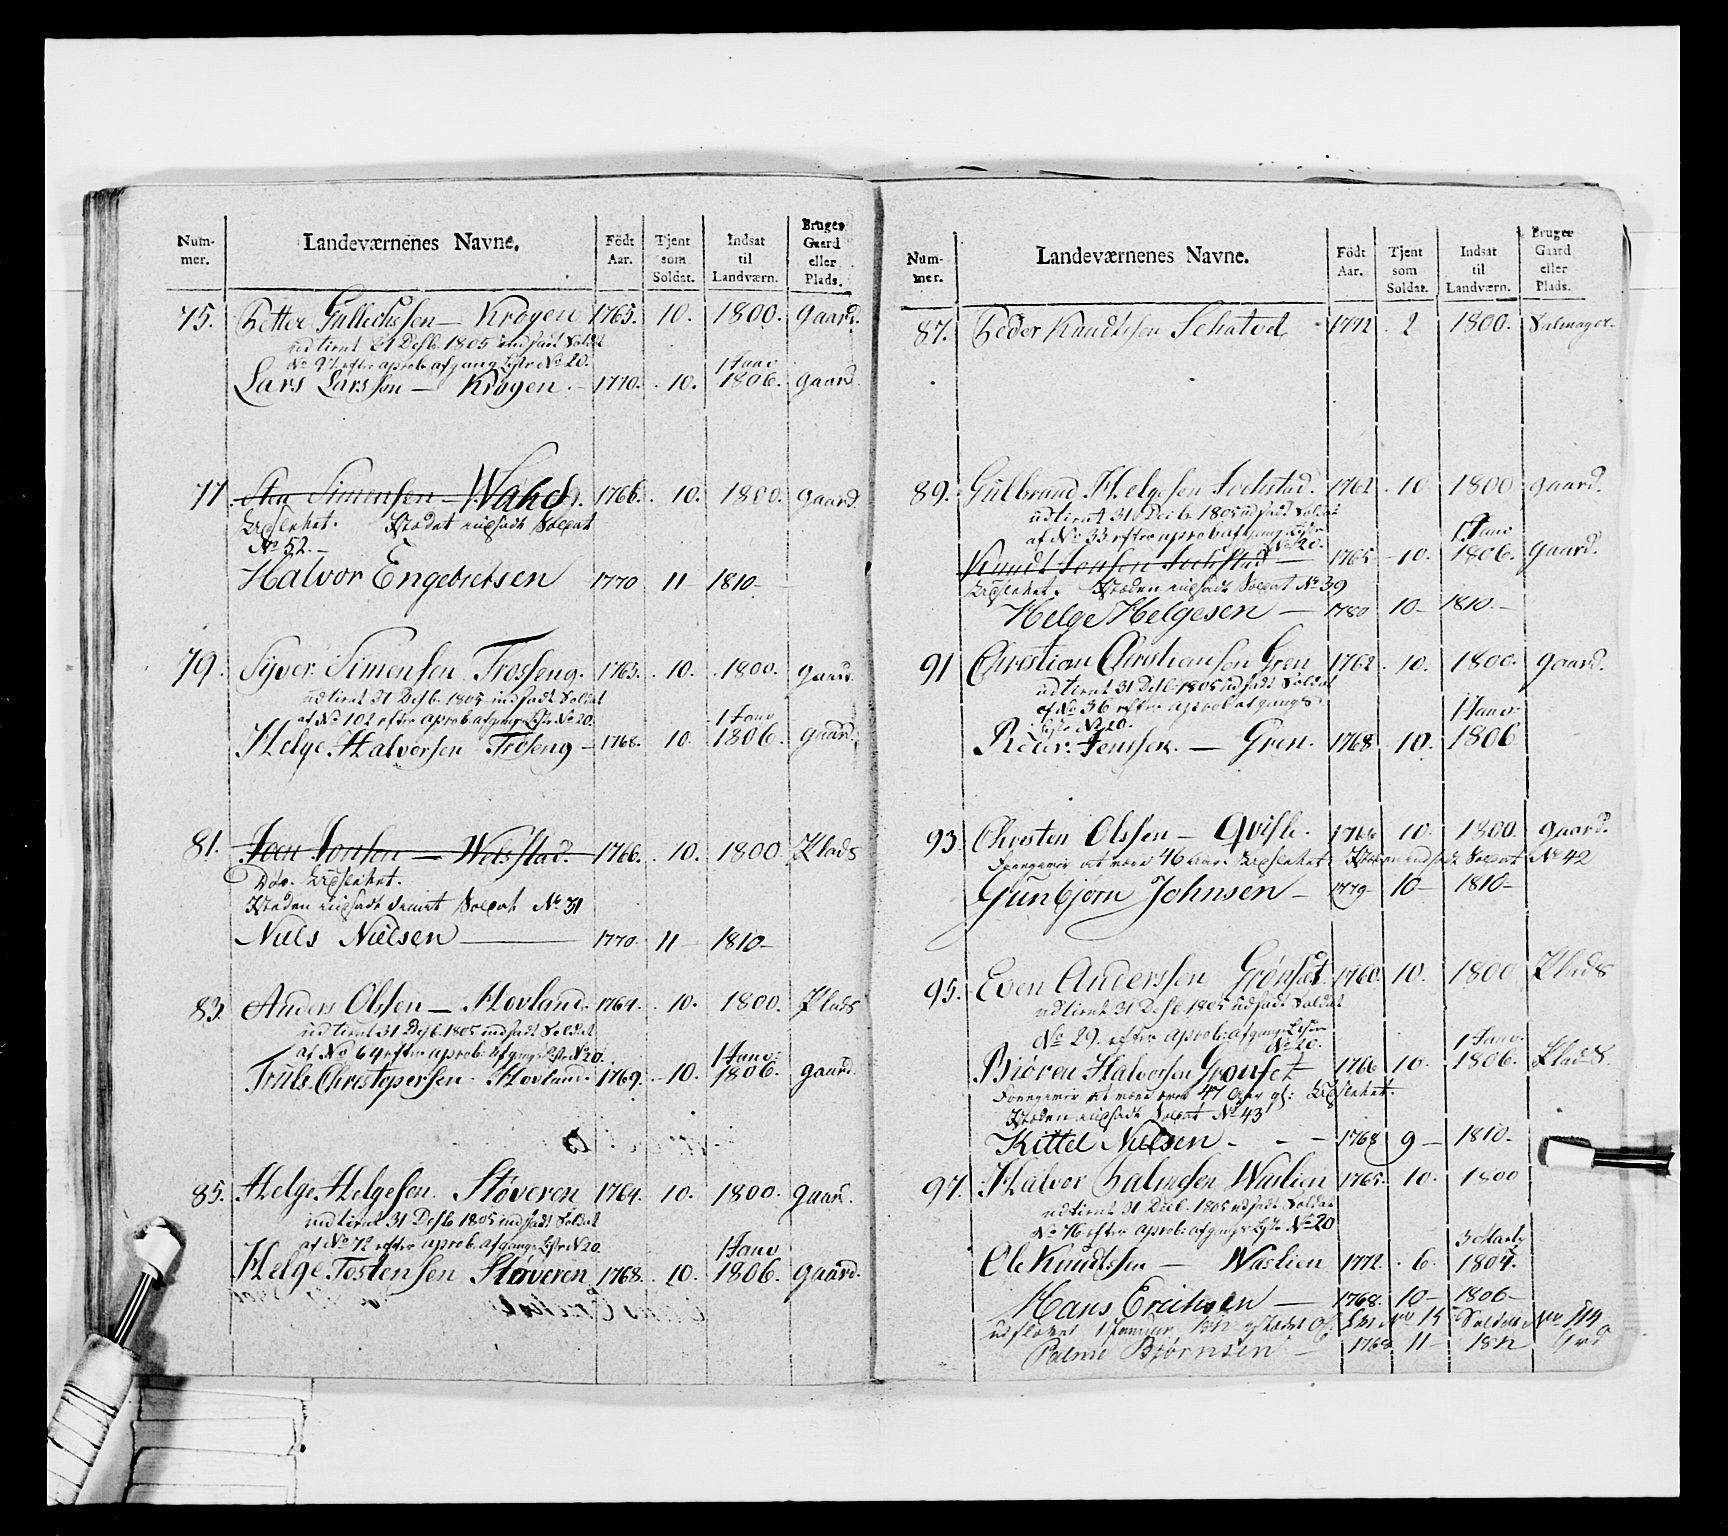 Num-
mer.
Landeværnenes Navne.
Födt
Aar.
Tjent
som
Soldat.
Indsat
til
Landværn.
Bruger
Gaard
eller
Plads.
75. Petter Gullechssen — Krogen 1765. 10. 1800. gaard.
udtient 31 Desb. 1805 indsadt Soldat
No 97 efter aprob: afgang Liste No 20.
1 Janv
Lars Larssen — Krogen. 1770. 10. 1806. gaard.
77. Simensen — 1766. 10. 1800. gaard
Stædet indsadt Soldat
No 52.
Halvor Engebretsen 1770 11 1810
79. Syver Simensen Trosseng. 1763. 10. 1800. gaard
udtient 31 Desb. 1805 indsadt Soldat
af No 102 efter aprob: afgangs Liste No 20.
1 Janv
Helge Halvorsen Tröseng — 1768. 10. 1806. gaard.
81. Jonsen — 1766. 10. 1800 Plads
No 31
Niels Nielsen — 1770. 11 1810 —
83. Anders Olssen — Hovland. 1764. 10. 1800. Plads
udtient 31 Desb. 1805 indsadt Soldat
af No 64 efter aprob: afgangs Liste No 20.
1 Janv:
Truls Christopersen. Hovland. 1769. 10. 1806. gaard.
85. Helge Helgesen. Støveren 1764. 10. 1800. gaard.
udtient 31 Desb 1805 indsadt Soldat
af No 72 efter aprob: afgangs Liste No 20.
1 Janv
Helge Tostensen Støveren 1768. 10. 1806. gaard.
Num-
mer.
Landeværnenes Navne.
Födt
Aar.
Tjent
som
Soldat.
Indsat
til
Landværn.
Bruger
Gaard
eller
Plads.
87. Peder Knudtssen 1772 2 1800.
89. Gulbrand Helgesen 1762 10 1800 gaard.
udtient 31 Desb. 1805 indsadt Soldat
af No 33 efter aprob: afgangs Liste
No 20.
1 Janv
Knudt Jonsen 1765 10. 1806. gaard.
Stæden indsadt Soldat No 39
Helge Helgesen — 1780 10 — 1810 —
91 Christian Christiansen Gren 1762. 10. 1800. gaard.
udtient 31 Desb. 1805 indsadt Soldat
af No 36 efter aprob: afgangs
Liste No 20.
1 Janv
Jensen. — Gren. 1768 10. 1806
93. Christen Olssen — Qvisle. 1766 10. 1800. gaard.
at være 46 Aar. Stæden indsadt Soldat No 42
Gunbjørn Johnsen — 1779 10 — 1810 —
95. Even Anderssen Grönset 1760. 10. 1800 Plads
udtient 31 Desb. 1805 indsadt Soldat
No 29. efter aprob: afgangs Liste
No 20.
1 Janv
Biören Halvorsen Grönset 1766 10. 1806. Plads.
at være over 47
Stæden indsadt Soldat No 43
Kittel Nielsen - - — 1768 9 — 1810 —
97. Halvor Palmesen Waslien 1765. 10. 1800
udtient 31 Desb. 1805 indsadt Soldat
No 76 efter aprob: afgangs Liste No 20
3 Marty
Ole Knudtssen — Waslien 1772. 6. 1804.
Hans Erichsen — 1768. 10 — 1806 —
1 Januar
Palme Bjørnsen — 1768 11 — 1812